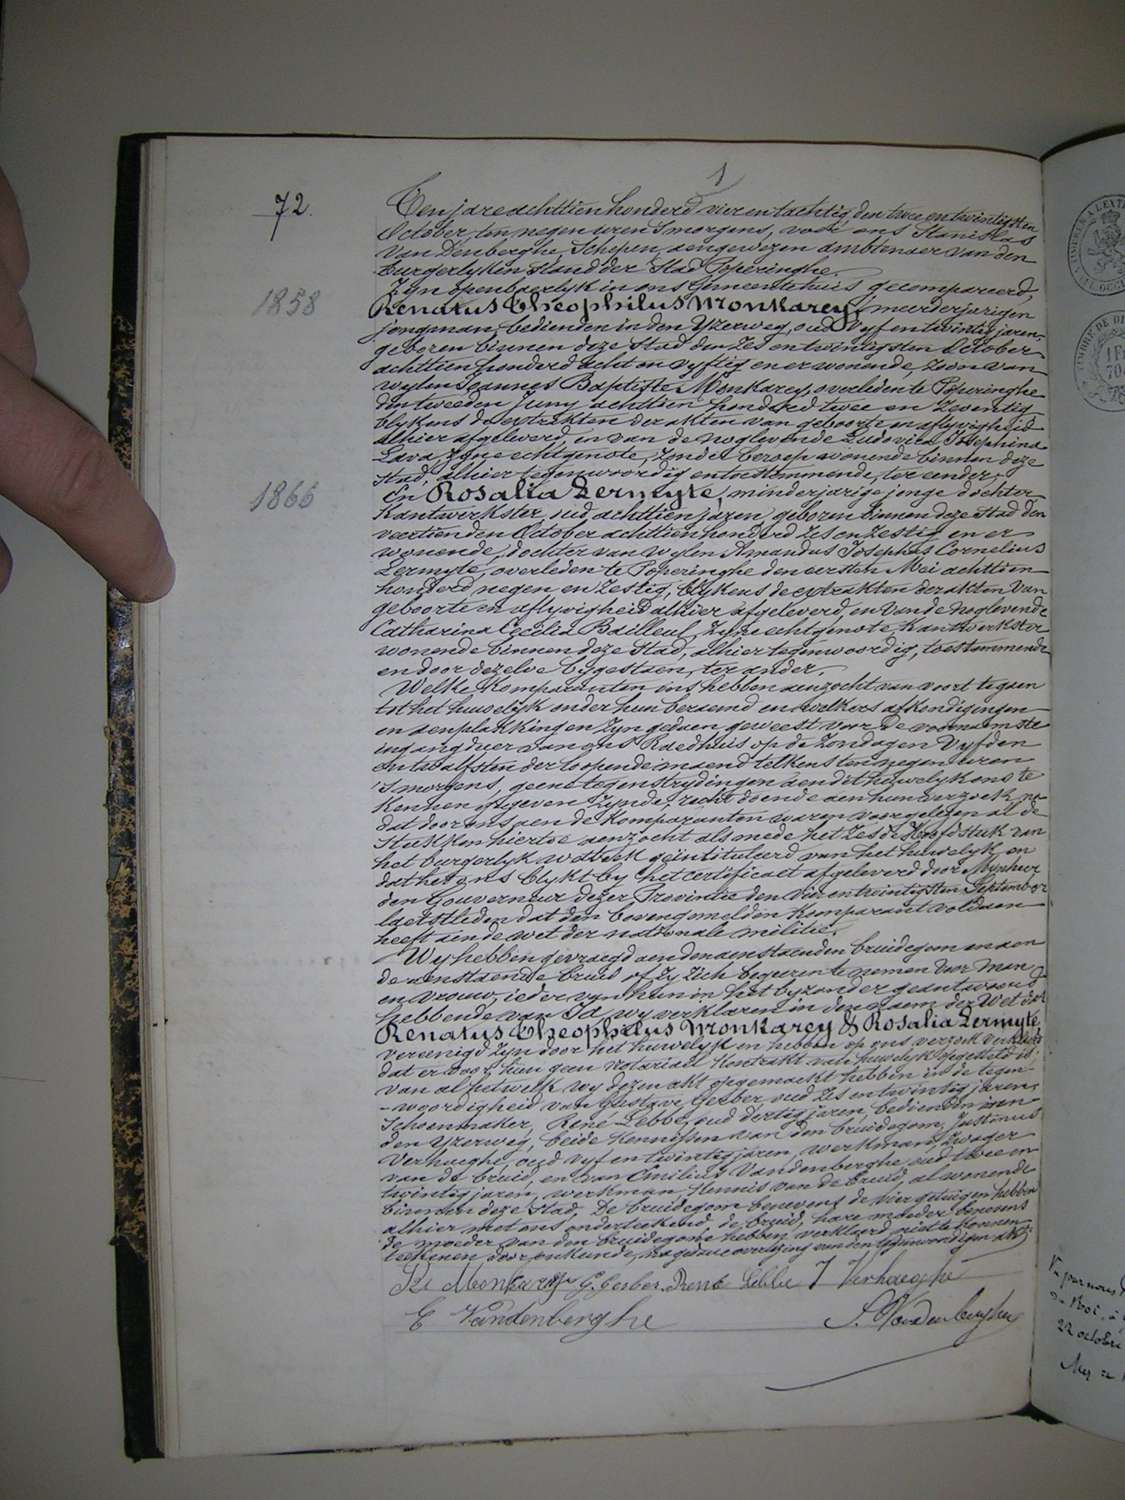 1
72.
Ten jare achttien honderd vier en tachtig, den twee en twintigsten
October, ten negen uren 's morgens, voor ons Stanislas
Van Denberghe, Schepen, aengewezen ambtenaer van den
Burgerlyken Stand der Stad Poperinghe.
Zyn openbaerlyk in ons Gemeentehuis gecompareerd,
1858
Renatus Theophilus Monkarey, meerderjarigen
jongman, bedienden in den Yzerweg, oud vyf en twintig jaren,
geboren binnen deze Stad den zes en twintigsten October
achttien honderd acht en vyftig en er wonende, zoon van
wylen Joannes Baptiste Monkarey, overleden te Poperinghe
den tweeden Juny achttien honderd twee en zeventig,
blykens de extrakten der akten van geboorte en aflyvigheid
alhier afgeleverd, en van de noglevende Ludovica Josephina
Lava, zyne echtgenote, zonder beroep wonende binnen deze
Stad, alhier tegenwoordig en toestemmende, ter eender;
1866
En Rosalia Lermyte, minderjarige jonge dochter
Kantwerkster, oud achttien jaren, geboren binnen deze Stad den
veertienden October achttien honderd zes en zestig en er
wonende, dochter van wylen Amandus Josephus Cornelius
Lermyte, overleden te Poperinghe den eersten Mei achttien
honderd negen en zestig, blykens de extrakten der akten van
geboorte en aflyvigheid alhier afgeleverd, en van de noglevende
Catharina Cecilia Bailleul, zyne echtgenote, Kantwerkster
wonende binnen deze Stad, alhier tegenwoordig, toestemmende
en door dezelve bygestaen, ter ander.
Welke Komparanten ons hebben aenzocht van voort te gaen
tot het huwelyk onder hun beraemd en welkers afkondigingen
en aenplakkingen zyn gedaen geweest voor de voornaemste
ingangduer van ons Raedhuis op de Zondagen vyfden
en twaalfsten der loopende maend telkens ten negen uren
's morgens, geene tegenstrydingen aen dit huwelyk ons te
kennen gegeven zynde, recht doende aen hun verzoek, na
dat door ons aen de Komparanten waren voorgelezen al de
Stukken hiertoe aenzocht als mede het zesde Hoofdstuk van
het burgerlyk wetboek geïntituleerd van het huwelyk, en
dat het ons blykt by het certificaet afgeleverd door Mynheer
den Gouverneur dezer Provintie den vier en twintigsten September
laetstleden dat den bovengemelden Komparant voldaen
heeft aen de wet der nationale militie.
Wy hebben gevraegd aen den aenstaenden bruidegom en aen
de aenstaende bruid of zy zich begeeren te nemen voor man
en vrouw, ieder van hun in het byzonder geantwoord
hebbende van Ja, wy verklaren in den naem der Wet dat
Renatus Theophilus Monkarey & Rosalia Lermyte
vereenigd zyn door het huwelyk en hebben op ons verzoek verklaerd
dat er door hun geen notariael Kontrakt van huwelyk opgesteld is;
van al hetwelk wy dezen akt opgemaekt hebben in de tegen-
-woordigheid van Gustave Gerber, oud zes en twintig jaren,
Schoenmaker, René Lebbe, oud dertig jaren, bedienden in
den Yzerweg, beide Kennissen van den bruidegom, Justinus
Verhaeghe, oud vyf en twintig jaren, werkman, zwager
van de bruid, en van Emilius Vandenberghe, oud twee en
twintig jaren, werkman, Kennis van de bruid, al wonende
binnen deze Stad. De bruidegom benevens de vier getuigen hebben
alhier met ons onderteekend, de bruid, hare moeder benevens
de moeder van den bruidegom hebben verklaerd niet te konnen
teekenen door onkunde, na gedaene overlezing van den tegenwoordigen akt.
G. Gerber René Lebbe J Verhaeghe
E Vandenberghe
S. Vandenberghe